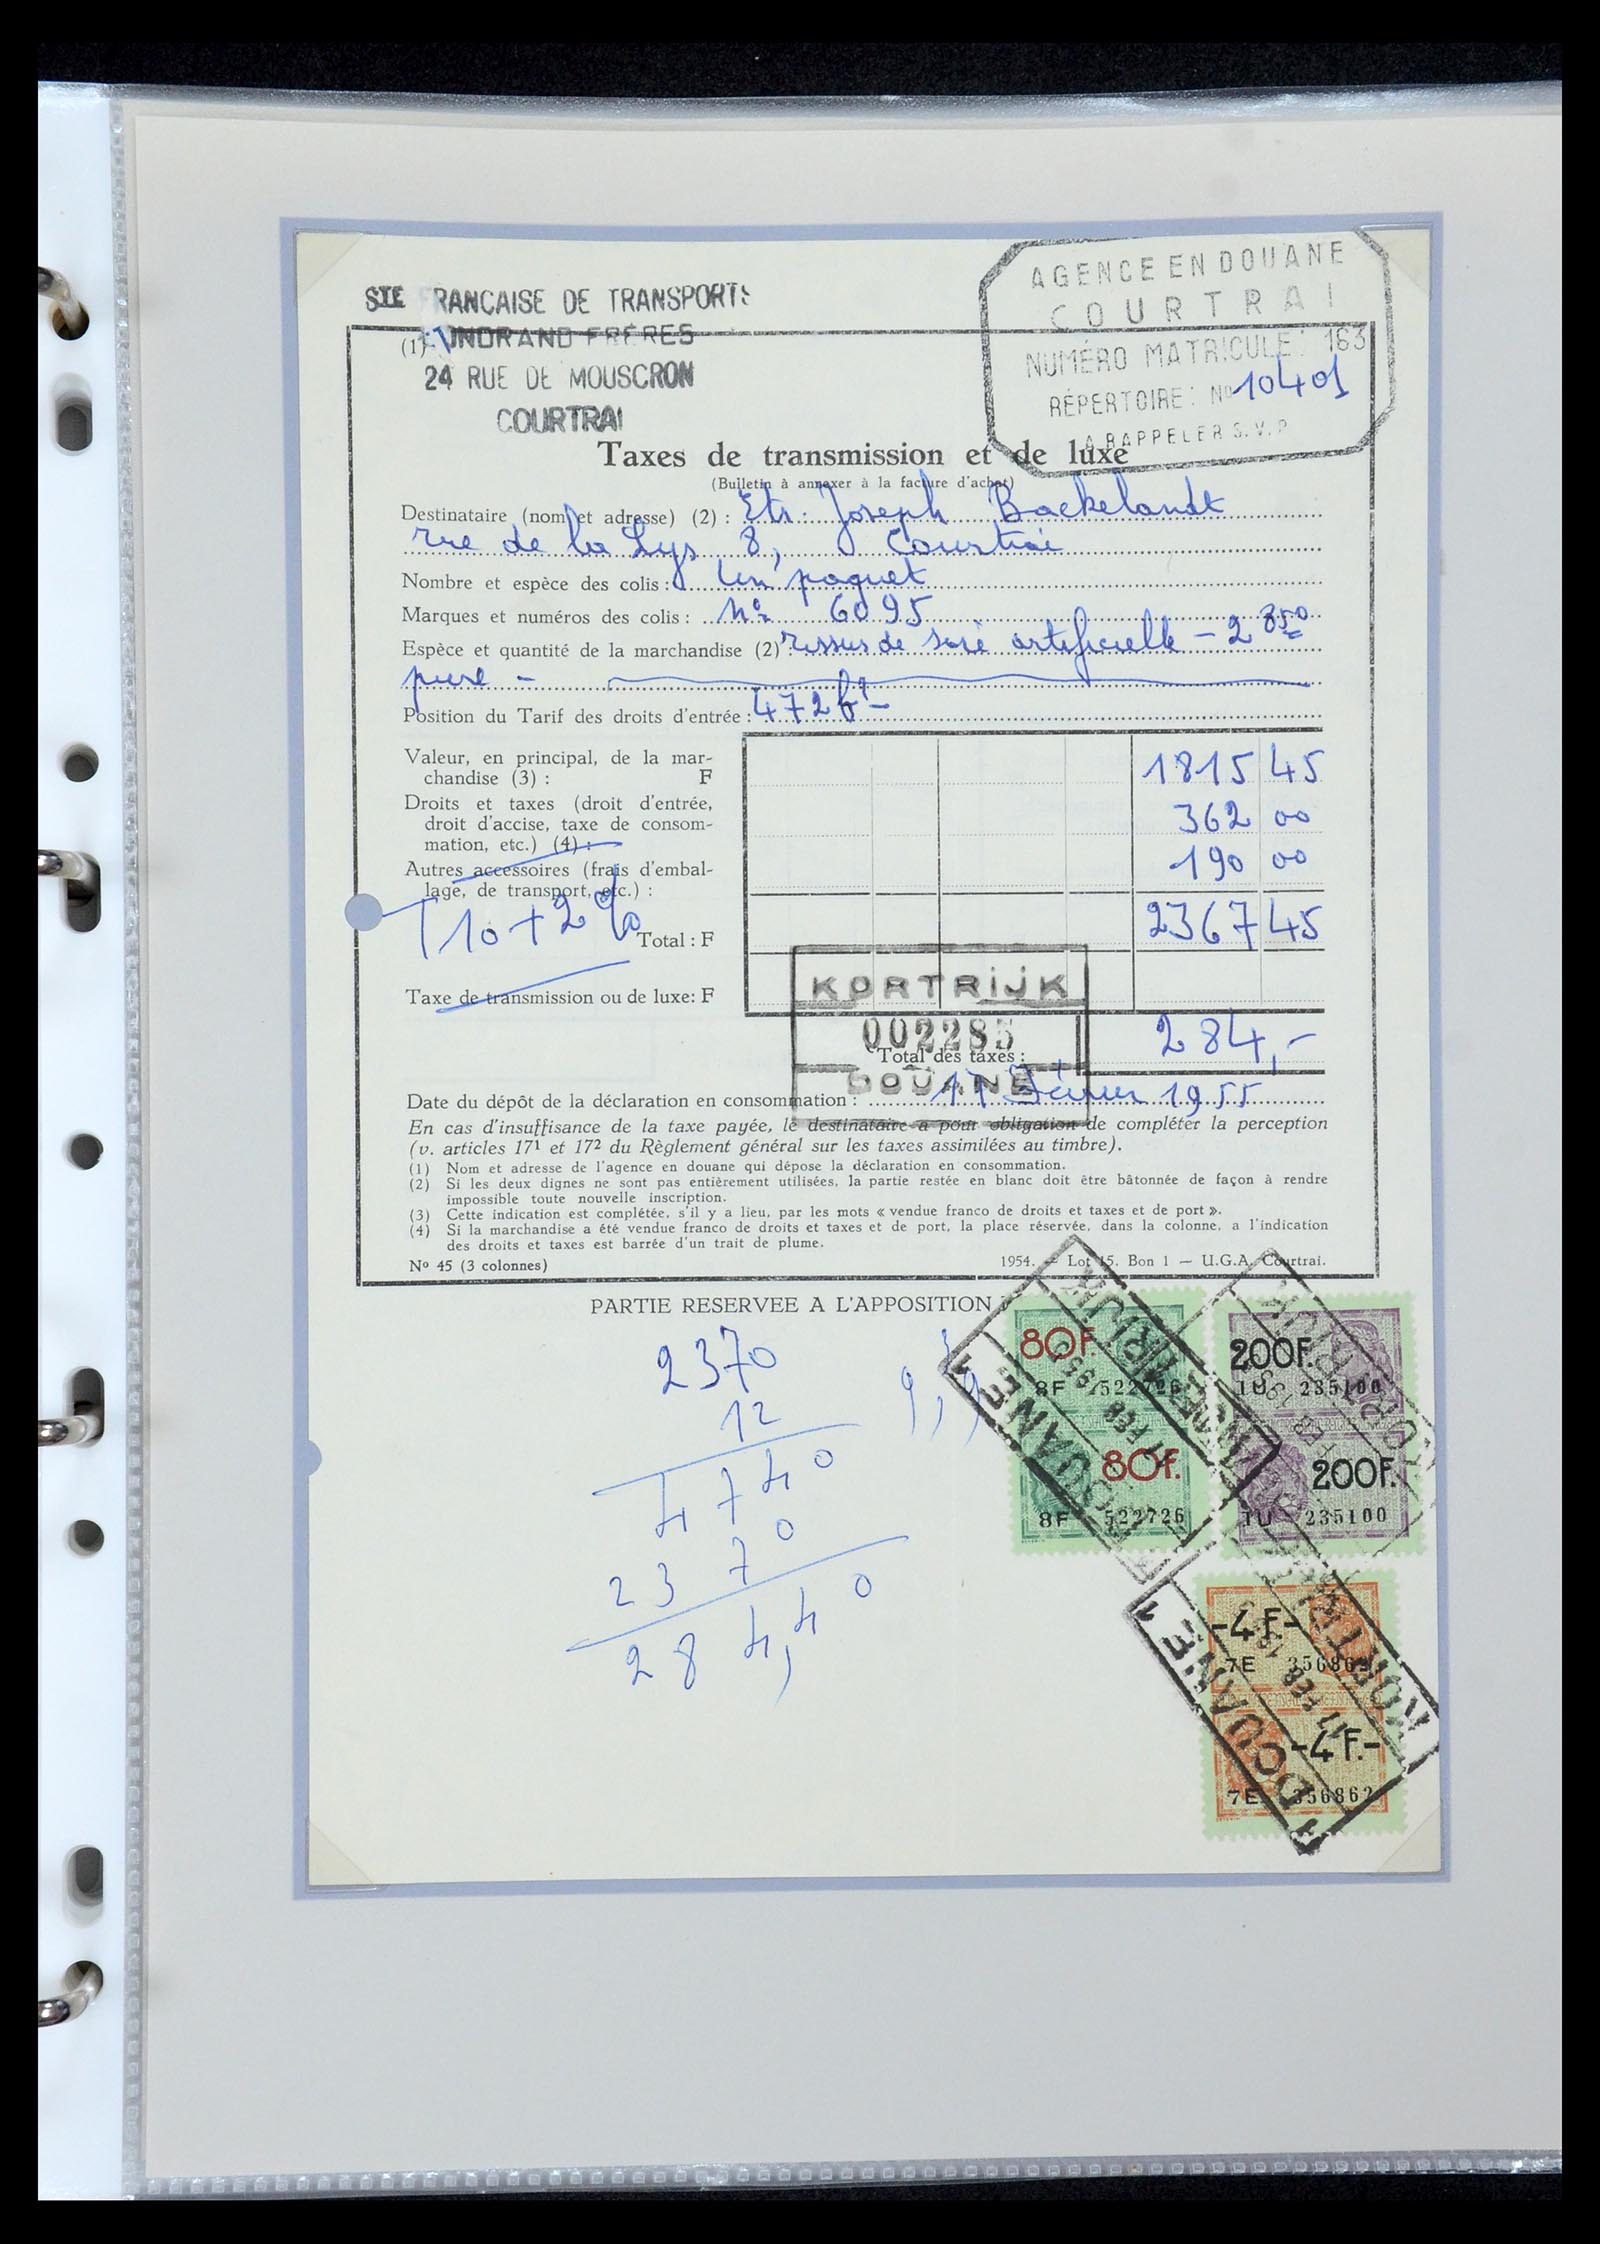 STE FRANÇAISE DE TRANSPORTS
GONDRAND FRÈRES
24 RUE DE MOUSCRON
COURTRAI
(1)
AGENCE EN DOUANE
COURTRAI
NUMÉRO MATRICULE: 163
RÉPERTOIRE: No 10401
A RAPPELER S.V.P.
Taxes de transmission et de luxe
(Bulletin à annexer à la facture d'achat)
Destinataire (nom et adresse) (2) : Ets. Joseph Backelandt
rue de la Lys 8, Courtrai
Nombre et espèce des colis : Un paquet
Marques et numéros des colis : No 6095
Espèce et quantité de la marchandise (2) Tissus de soie artificielle - 2 850
pure -
Position du Tarif des droits d'entrée : 472
Valeur, en principal, de la mar-
chandise (3) : F 1815 45
Droits et taxes (droit d'entrée,
droit d'accise, taxe de consom-
mation, etc.) (4) : 362 00
Autres accessoires (frais d'embal-
lage, de transport, etc.) : 190 00
T 10 + 2%
Total : F 2367 45
Taxe de transmission ou de luxe: F
KORTRIJK
002285
DOUANE
Total des taxes : 284,-
Date du dépôt de la déclaration en consommation : 11 Février 1955
En cas d'insuffisance de la taxe payée, le destinataire a pour obligation de compléter la perception
(v. articles 17¹ et 17² du Règlement général sur les taxes assimilées au timbre).
(1) Nom et adresse de l'agence en douane qui dépose la déclaration en consommation.
(2) Si les deux dignes ne sont pas entièrement utilisées, la partie restée en blanc doit être bâtonnée de façon à rendre
impossible toute nouvelle inscription.
(3) Cette indication est complétée, s'il y a lieu, par les mots « vendue franco de droits et taxes et de port ».
(4) Si la marchandise a été vendue franco de droits et taxes et de port, la place réservée, dans la colonne, a l'indication
des droits et taxes est barrée d'un trait de plume.
No 45 (3 colonnes)
1954. — Lot 15. Bon 1 — U.G.A. Courtrai.
PARTIE RESERVEE A L'APPOSITION
2370
12
4740
2370
284,40
80F.
8F 522726
80F.
8F 522726
200F.
1U 235100
200F.
1U 235100
-4F-
7E 356862
-4F.-
7E 356862
DOUANE
11 FEB 195
KORTRIJK
DOUANE
11 FEB 195
KORTRIJK